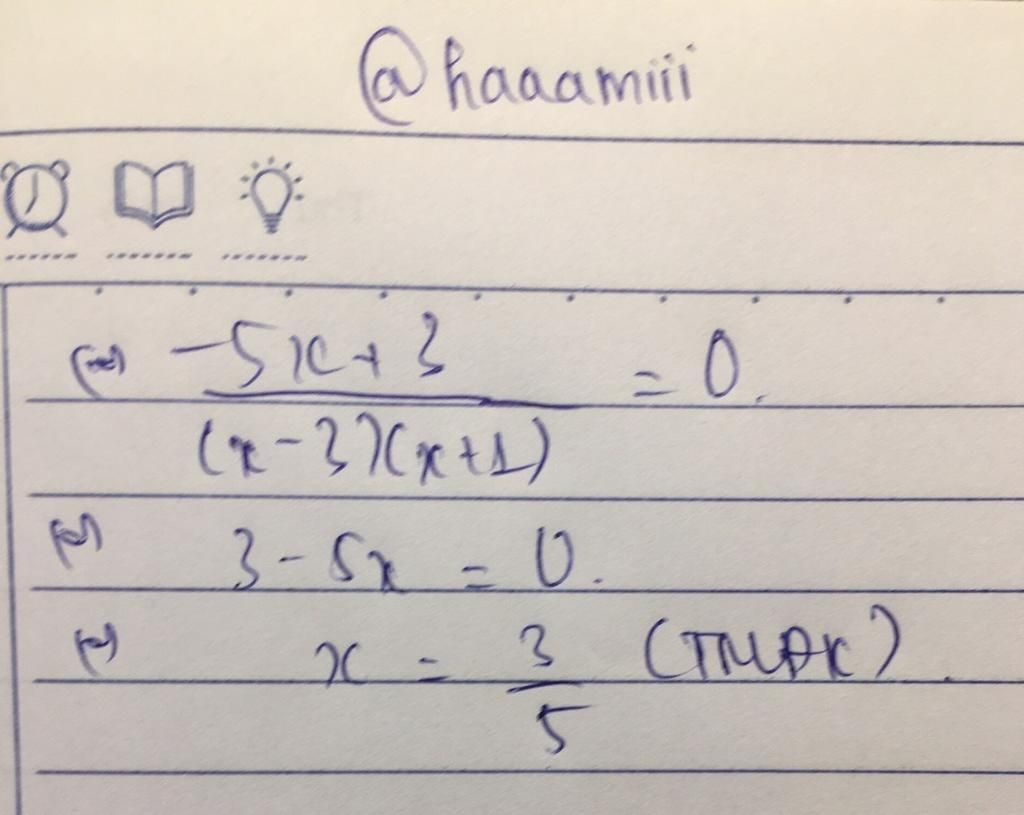 @haaamiii
(=) -5x+3 / (x-3)(x+1) = 0.
(=) 3-5x = 0.
(=) x = 3/5 (TMĐK).